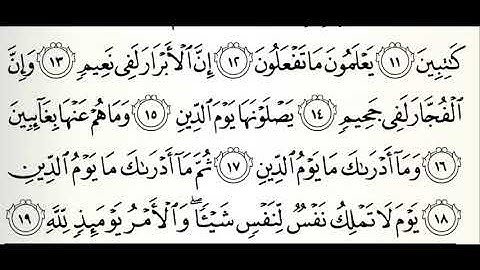 كَٰتِبِينَ ١١ يَعْلَمُونَ مَا تَفْعَلُونَ ١٢ إِنَّ ٱلْأَبْرَارَ لَفِى نَعِيمٍ ١٣ وَإِنَّ
ٱلْفُجَّارَ لَفِى جَحِيمٍ ١٤ يَصْلَوْنَهَا يَوْمَ ٱلدِّينِ ١٥ وَمَا هُمْ عَنْهَا بِغَآئِبِينَ
١٦ وَمَآ أَدْرَىٰكَ مَا يَوْمُ ٱلدِّينِ ١٧ ثُمَّ مَآ أَدْرَىٰكَ مَا يَوْمُ ٱلدِّينِ
١٨ يَوْمَ لَا تَمْلِكُ نَفْسٌ لِّنَفْسٍ شَيْـًٔا ۖ وَٱلْأَمْرُ يَوْمَئِذٍ لِّلَّهِ ١٩